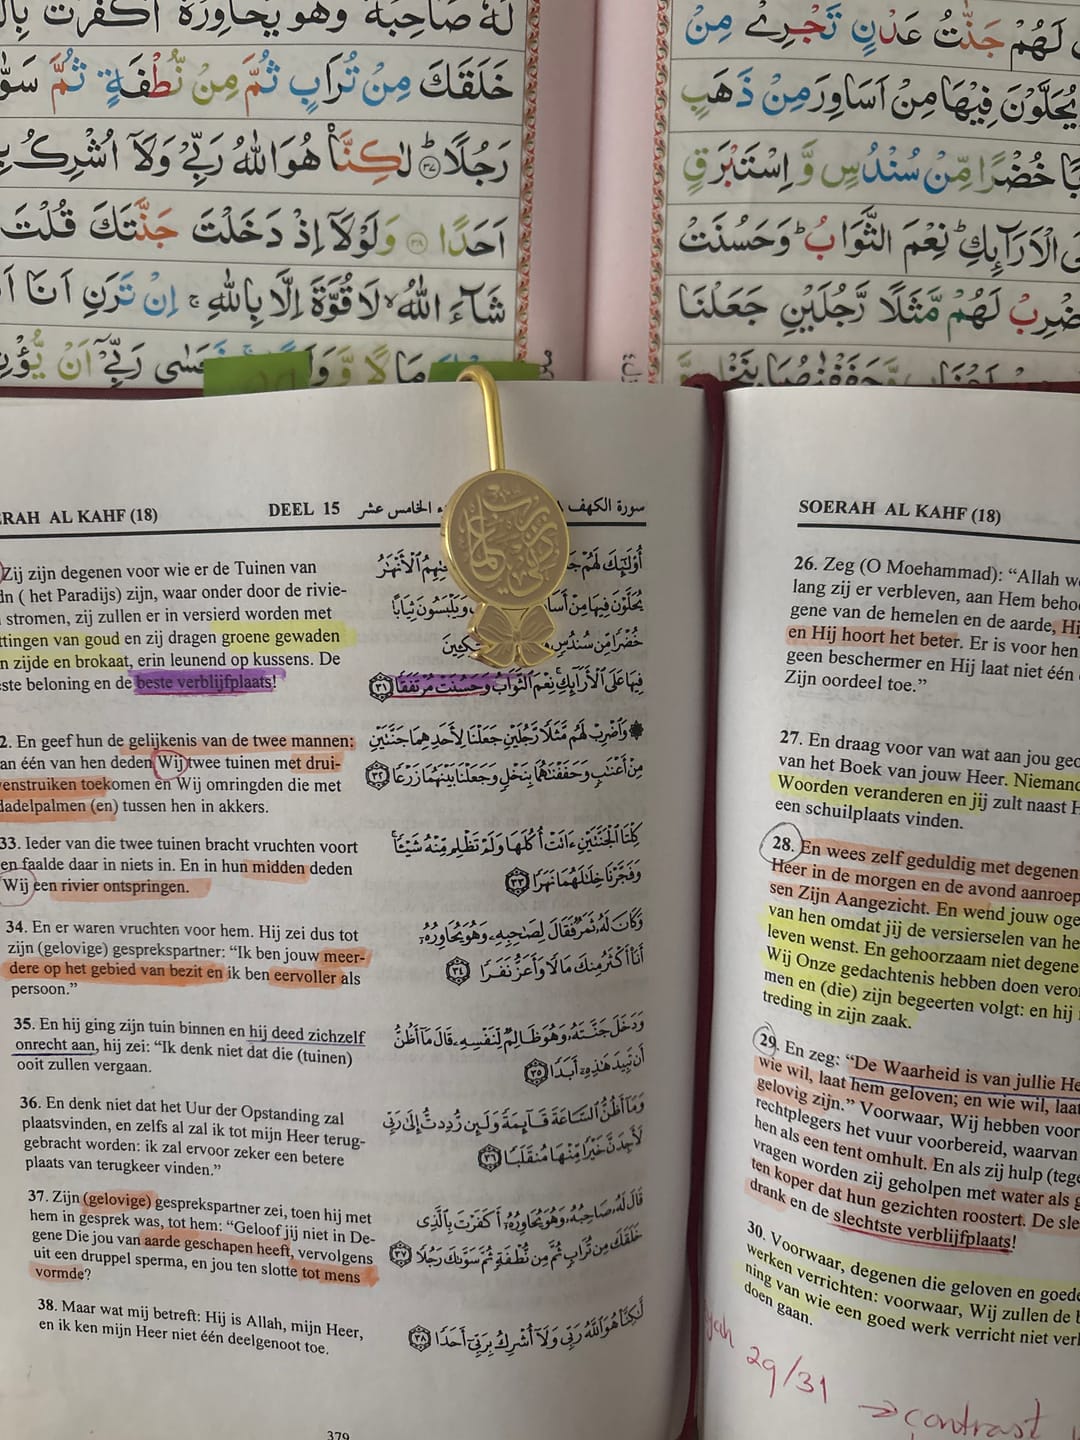 لَهُمْ جَنّٰتُ عَدْنٍ تَجْرِيْ مِنْ
يُحَلَّوْنَ فِيْهَا مِنْ اَسَاوِرَ مِنْ ذَهَبٍ
خُضْرًا مِّنْ سُنْدُسٍ وَّ اِسْتَبْرَقٍ
الْاَرَآىِٕكِ ؕ نِعْمَ الثَّوَابُ ؕ وَحَسُنَتْ
لَهُمْ مَّثَلًا رَّجُلَيْنِ جَعَلْنَا
لَهٗ صَاحِبُهٗ وَهُوَ يُحَاوِرُهٗۤ اَكَفَرْتَ
خَلَقَكَ مِنْ تُرَابٍ ثُمَّ مِنْ نُّطْفَةٍ ثُمَّ
رَجُلًا ؕ ۳۷ لٰكِنَّا۠ هُوَ اللّٰهُ رَبِّيْ وَلَاۤ اُشْرِكُ
اَحَدًا ۳۸ وَلَوْلَاۤ اِذْ دَخَلْتَ جَنَّتَكَ قُلْتَ
شَآءَ اللّٰهُ ۙ لَا قُوَّةَ اِلَّا بِاللّٰهِ ۚ اِنْ تَرَنِ اَنَا
مَالًا وَّ رَبِّيْۤ اَنْ
ERAH AL KAHF (18) DEEL 15 الخامس عشر سورة الكهف
Zij zijn degenen voor wie er de Tuinen van
dn ( het Paradijs) zijn, waar onder door de rivie-
stromen, zij zullen er in versierd worden met
ttingen van goud en zij dragen groene gewaden
n zijde en brokaat, erin leunend op kussens. De
ste beloning en de beste verblijfplaats!
أُوْلَٰٓئِكَ لَهُمْ ٱلْأَنْهَٰرُ
يُحَلَّوْنَ فِيهَا مِنْ وَيَلْبَسُونَ ثِيَابًا
خُضْرًا مِّن سُندُسٍ
فِيهَا عَلَى ٱلْأَرَآئِكِ نِعْمَ ٱلثَّوَابُ وَحَسُنَتْ مُرْتَفَقًا ٣١
2. En geef hun de gelijkenis van de twee mannen:
an één van hen deden Wij twee tuinen met drui-
venstruiken toekomen en Wij omringden die met
dadelpalmen (en) tussen hen in akkers.
۞ وَٱضْرِبْ لَهُم مَّثَلًا رَّجُلَيْنِ جَعَلْنَا لِأَحَدِهِمَا جَنَّتَيْنِ
مِنْ أَعْنَٰبٍ وَحَفَفْنَٰهُمَا بِنَخْلٍ وَجَعَلْنَا بَيْنَهُمَا زَرْعًا ٣٢
33. Ieder van die twee tuinen bracht vruchten voort
en faalde daar in niets in. En in hun midden deden
Wij een rivier ontspringen.
كِلْتَا ٱلْجَنَّتَيْنِ ءَاتَتْ أُكُلَهَا وَلَمْ تَظْلِم مِّنْهُ شَيْـًٔا
وَفَجَّرْنَا خِلَٰلَهُمَا نَهَرًا ٣٣
34. En er waren vruchten voor hem. Hij zei dus tot
zijn (gelovige) gesprekspartner: “Ik ben jouw meer-
dere op het gebied van bezit en ik ben eervoller als
persoon.”
وَكَانَ لَهُۥ ثَمَرٌ فَقَالَ لِصَٰحِبِهِۦ وَهُوَ يُحَاوِرُهُۥٓ
أَنَا۠ أَكْثَرُ مِنكَ مَالًا وَأَعَزُّ نَفَرًا ٣٤
35. En hij ging zijn tuin binnen en hij deed zichzelf
onrecht aan, hij zei: “Ik denk niet dat die (tuinen)
ooit zullen vergaan.
وَدَخَلَ جَنَّتَهُۥ وَهُوَ ظَالِمٌ لِّنَفْسِهِۦ قَالَ مَآ أَظُنُّ
أَن تَبِيدَ هَٰذِهِۦٓ أَبَدًا ٣٥
36. En denk niet dat het Uur der Opstanding zal
plaatsvinden, en zelfs al zal ik tot mijn Heer terug-
gebracht worden: ik zal ervoor zeker een betere
plaats van terugkeer vinden.”
وَمَآ أَظُنُّ ٱلسَّاعَةَ قَآئِمَةً وَلَئِن رُّدِدتُّ إِلَىٰ رَبِّى
لَأَجِدَنَّ خَيْرًا مِّنْهَا مُنقَلَبًا ٣٦
37. Zijn (gelovige) gesprekspartner zei, toen hij met
hem in gesprek was, tot hem: “Geloof jij niet in De-
gene Die jou van aarde geschapen heeft, vervolgens
uit een druppel sperma, en jou ten slotte tot mens
vormde?
قَالَ لَهُۥ صَاحِبُهُۥ وَهُوَ يُحَاوِرُهُۥٓ أَكَفَرْتَ بِٱلَّذِى
خَلَقَكَ مِن تُرَابٍ ثُمَّ مِن نُّطْفَةٍ ثُمَّ سَوَّىٰكَ رَجُلًا ٣٧
38. Maar wat mij betreft: Hij is Allah, mijn Heer,
en ik ken mijn Heer niet één deelgenoot toe.
لَّٰكِنَّا۠ هُوَ ٱللَّهُ رَبِّى وَلَآ أُشْرِكُ بِرَبِّىٓ أَحَدًا ٣٨
379
SOERAH AL KAHF (18)
26. Zeg (O Moehammad): “Allah
lang zij er verbleven, aan Hem
gene van de hemelen en de aarde,
en Hij hoort het beter. Er is voor hen
geen beschermer en Hij laat niet één
Zijn oordeel toe.”
27. En draag voor van wat aan jou
van het Boek van jouw Heer. Niemand
Woorden veranderen en jij zult naast
een schuilplaats vinden.
28. En wees zelf geduldig met degenen
Heer in de morgen en de avond
sen Zijn Aangezicht. En wend jouw
van hen omdat jij de versierselen van
leven wenst. En gehoorzaam niet
Wij Onze gedachtenis hebben doen
men en (die) zijn begeerten volgt: en hij
treding in zijn zaak.
29. En zeg: “De Waarheid is van jullie
wie wil, laat hem geloven; en wie wil, laat
gelovig zijn.” Voorwaar, Wij hebben voor
rechtplegers het vuur voorbereid, waarvan
hen als een tent omhult. En als zij hulp
vragen worden zij geholpen met water als
ten koper dat hun gezichten roostert. De
drank en de slechtste verblijfplaats!
30. Voorwaar, degenen die geloven en
werken verrichten: voorwaar, Wij zullen de
ning van wie een goed werk verricht niet
doen gaan.
29/31
→ contrast